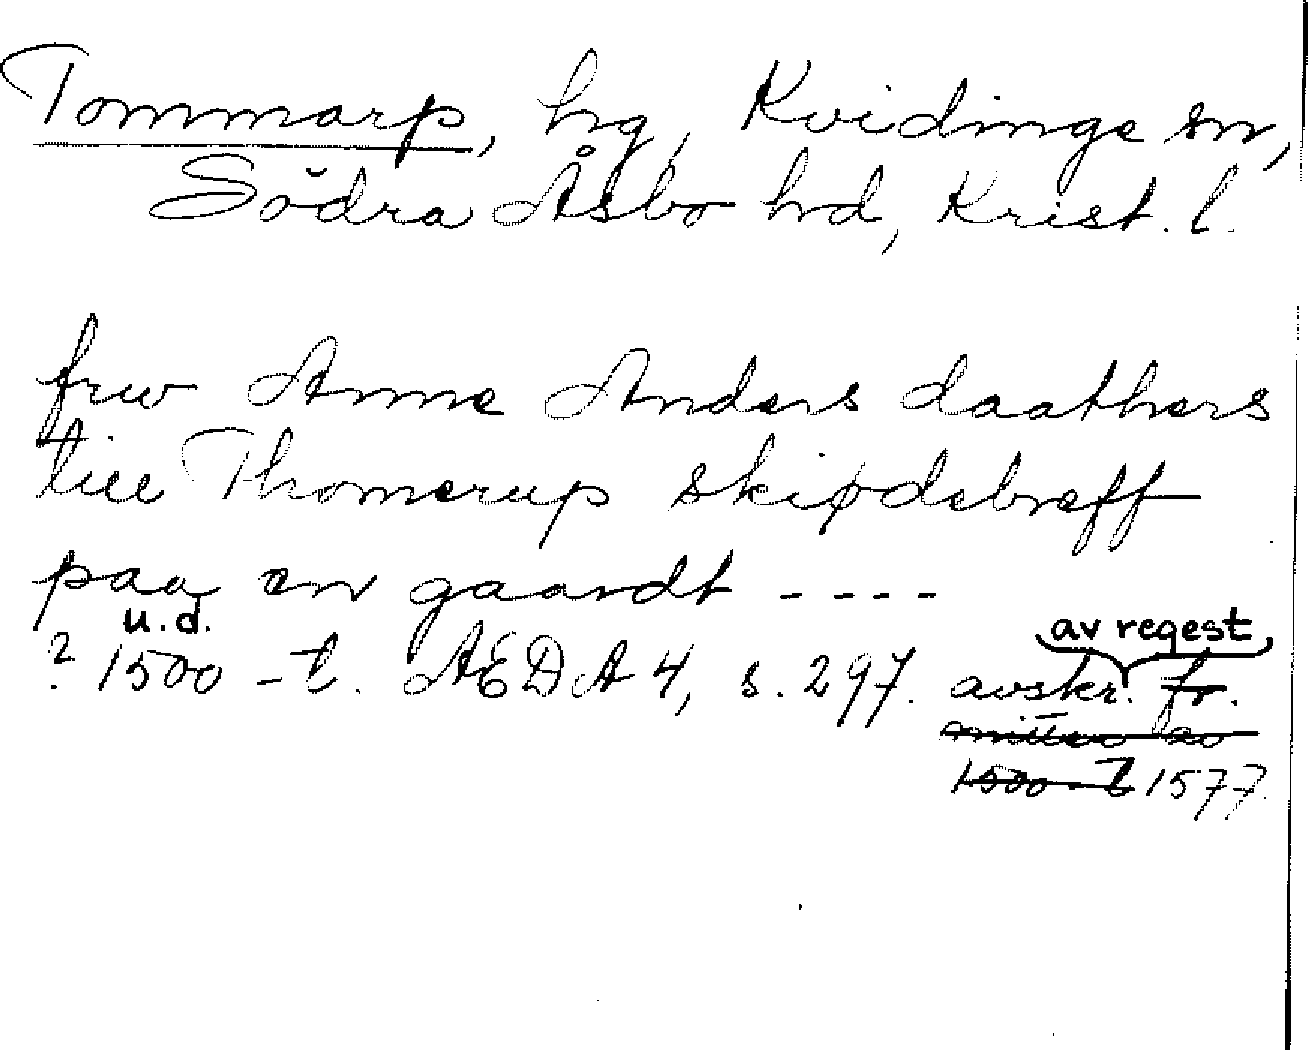 Tommarp, hg, Kvidinge sn,
Södra Åsbo hd, Krist. l.
frw Anne Anders daathers
till Thomerup skiødebreff
paa en gaardt ----
u.d.
? 1500 -t. AEDA 4, s. 297. avskr. av regest fr.
mitten av
1500-t 1577.